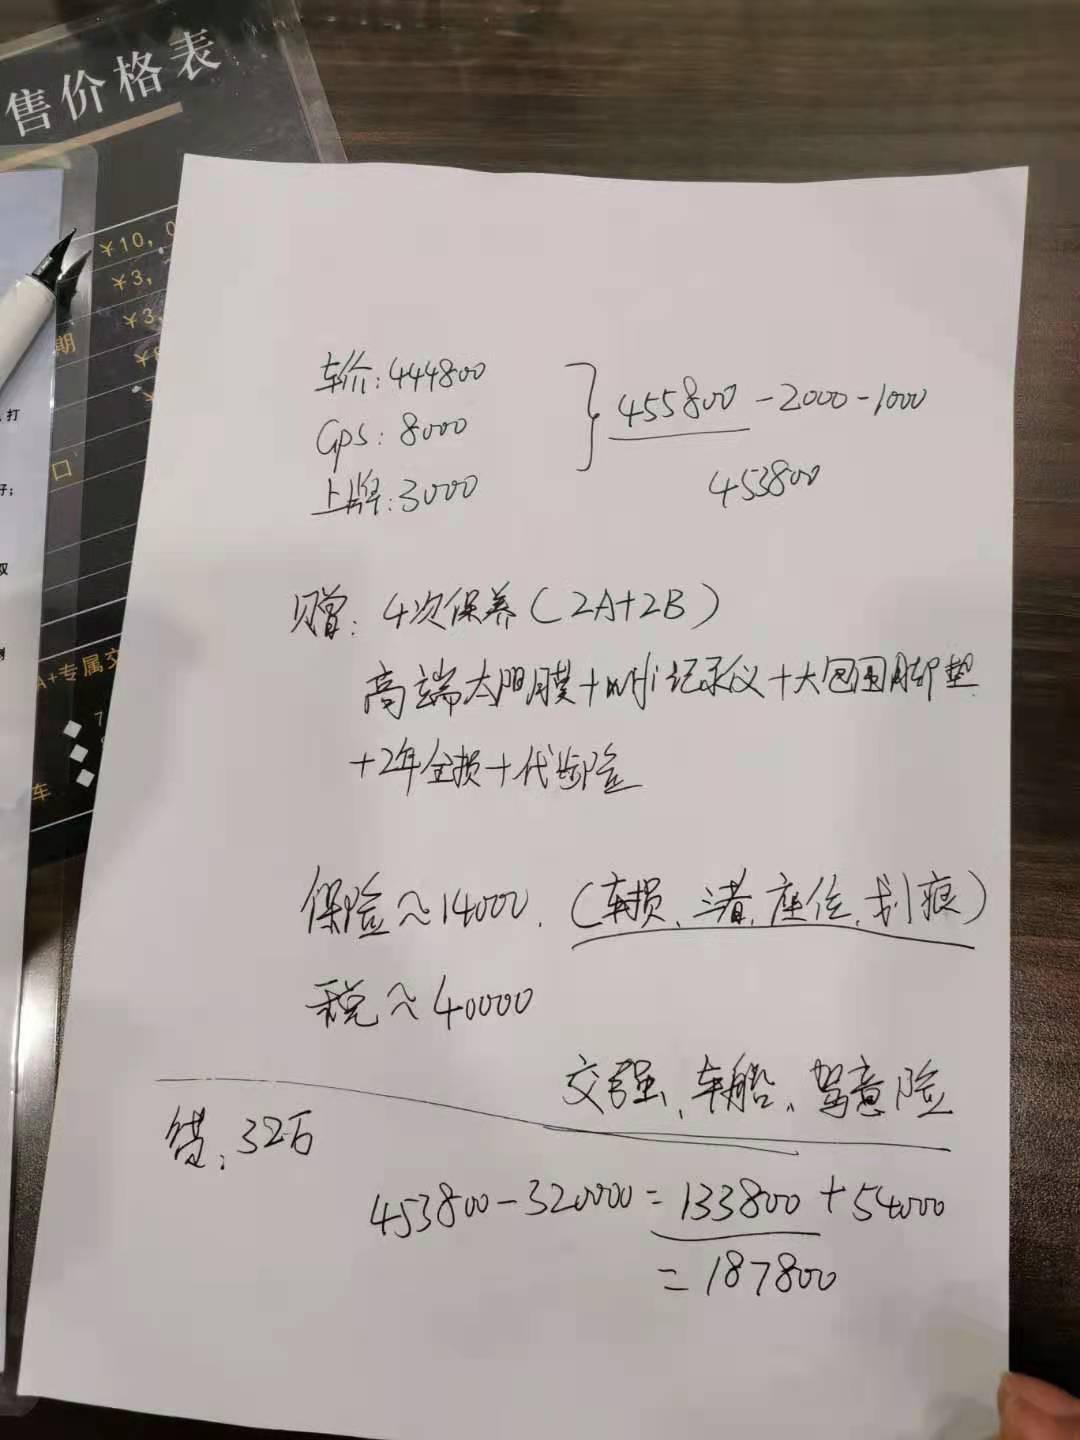 售价格表
¥10,0
¥3,
¥3
期
打
口
好;
双
A+专属交
7
车
车价:444800
GPS:8000
上牌:3000
455800-2000-1000
453800
赠:4次保养(2A+2B)
高端太阳膜+wifi记录仪+大包围脚垫
+2年全损+代步险
保险≈14000.(车损、三者、座位、划痕)
税≈40000
交强、车船、驾意险
贷:32万
453800-320000=133800+54000
=187800